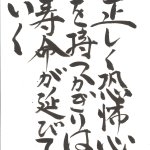 正しく恐怖心
を持つかぎりは
寿命が延びて
いく